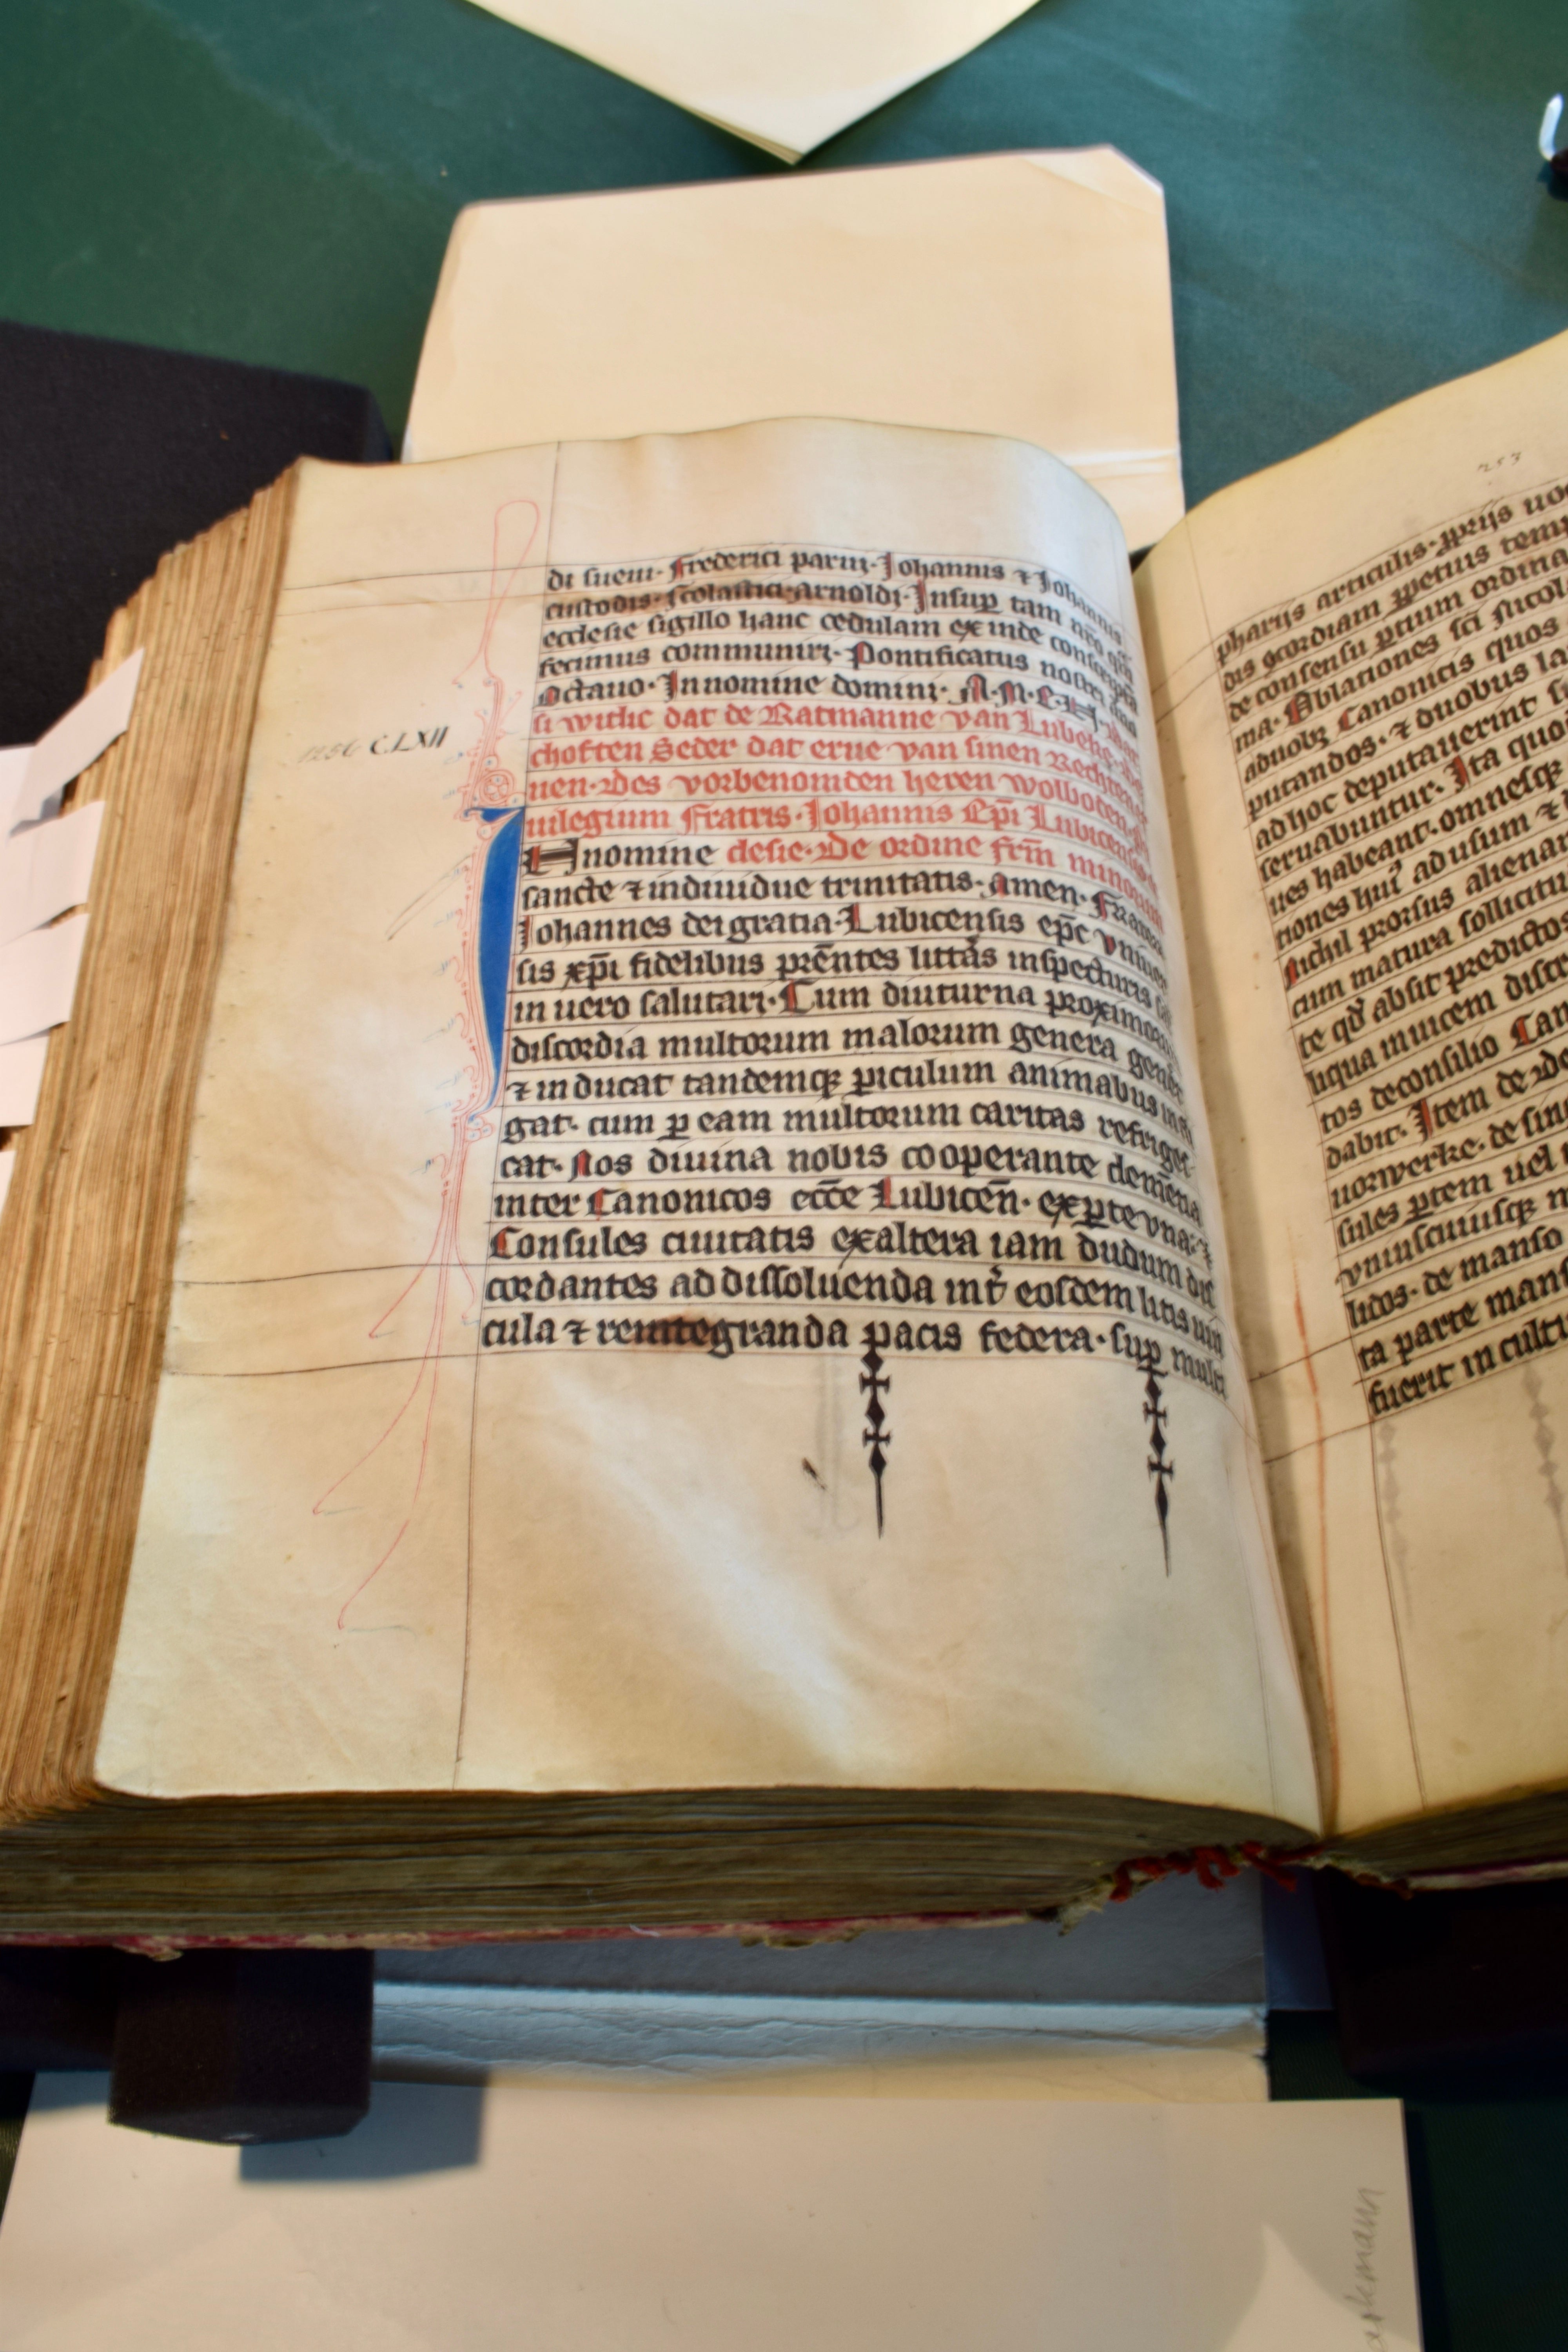 di sueui. Frederici parui. Johannis ⁊ Johannis
custodis. Scolastici. Arnoldi. Insuꝑ tam
ecclesie sigillo hanc cedulam ex inde
fecimus communiri. Pontificatus nostri
Octauo. Innomine domini. A.M.E.N.
si witlic dat de Ratmanne van Lubeke.
choften Seder dat erue van sinen Rechten
nen. Des vorbenomden heren wolboden.
uilegium Fratris. Johannis Ep̄i Lubicensis
C.LXII
Innomine desie. De ordine fr̄m minorum
sancte ⁊ indiuidue trinitatis. Amen. Frater
Johannes dei gratia. Lubicensis ep̄c vniuer
sis xp̄i fidelibus pr̄entes litt̄as inspecturis
in uero salutari. Cum diuturna proximorum
discordia multorum malorum genera
⁊ in ducat tandemqꝫ ꝑiculum animabus
gat. cum ꝑ eam multorum caritas refriges
cat. Nos diuina nobis cooperante
inter Canonicos ecc̄e Lubicen̄. ex ꝑte vna. ⁊
Consules ciuitatis exaltera iam dudum dis
cordantes ad dissoluenda int̄ eosdem litis uin
cula ⁊ reintegranda pacis federa. suꝑ multi
253
pharijs articulis.
de consensu ꝑtium ordina
ma. Oblationes sc̄i Nicol
aduobꝫ Canonicis quos
putandos. ⁊ duobus la
ad hoc deputauerint
seruabuntur. Ita quo
ues habeant. omnesqꝫ
ad usum ⁊
Nichil prorsus alienar
cum matura sollicitu
te qd̄ absit predictos
liqua inuicem discr
tos deconsilio Can
dabit. Item de
uorwerke. de sin
sules ꝑtem uel
vniuscuiusqꝫ
lidos. de manso
ta parte mans
fuerit in cultu